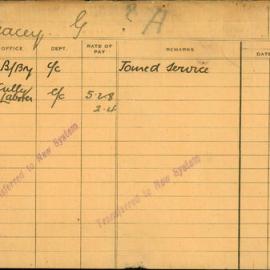 acey. G. ? A
OFFICE DEPT. RATE OF PAY REMARKS DATE
B/Bry C/c Joined Service
Cully Labster C/c 5-2-8
2-d
Transferred to New System
sferred to New System